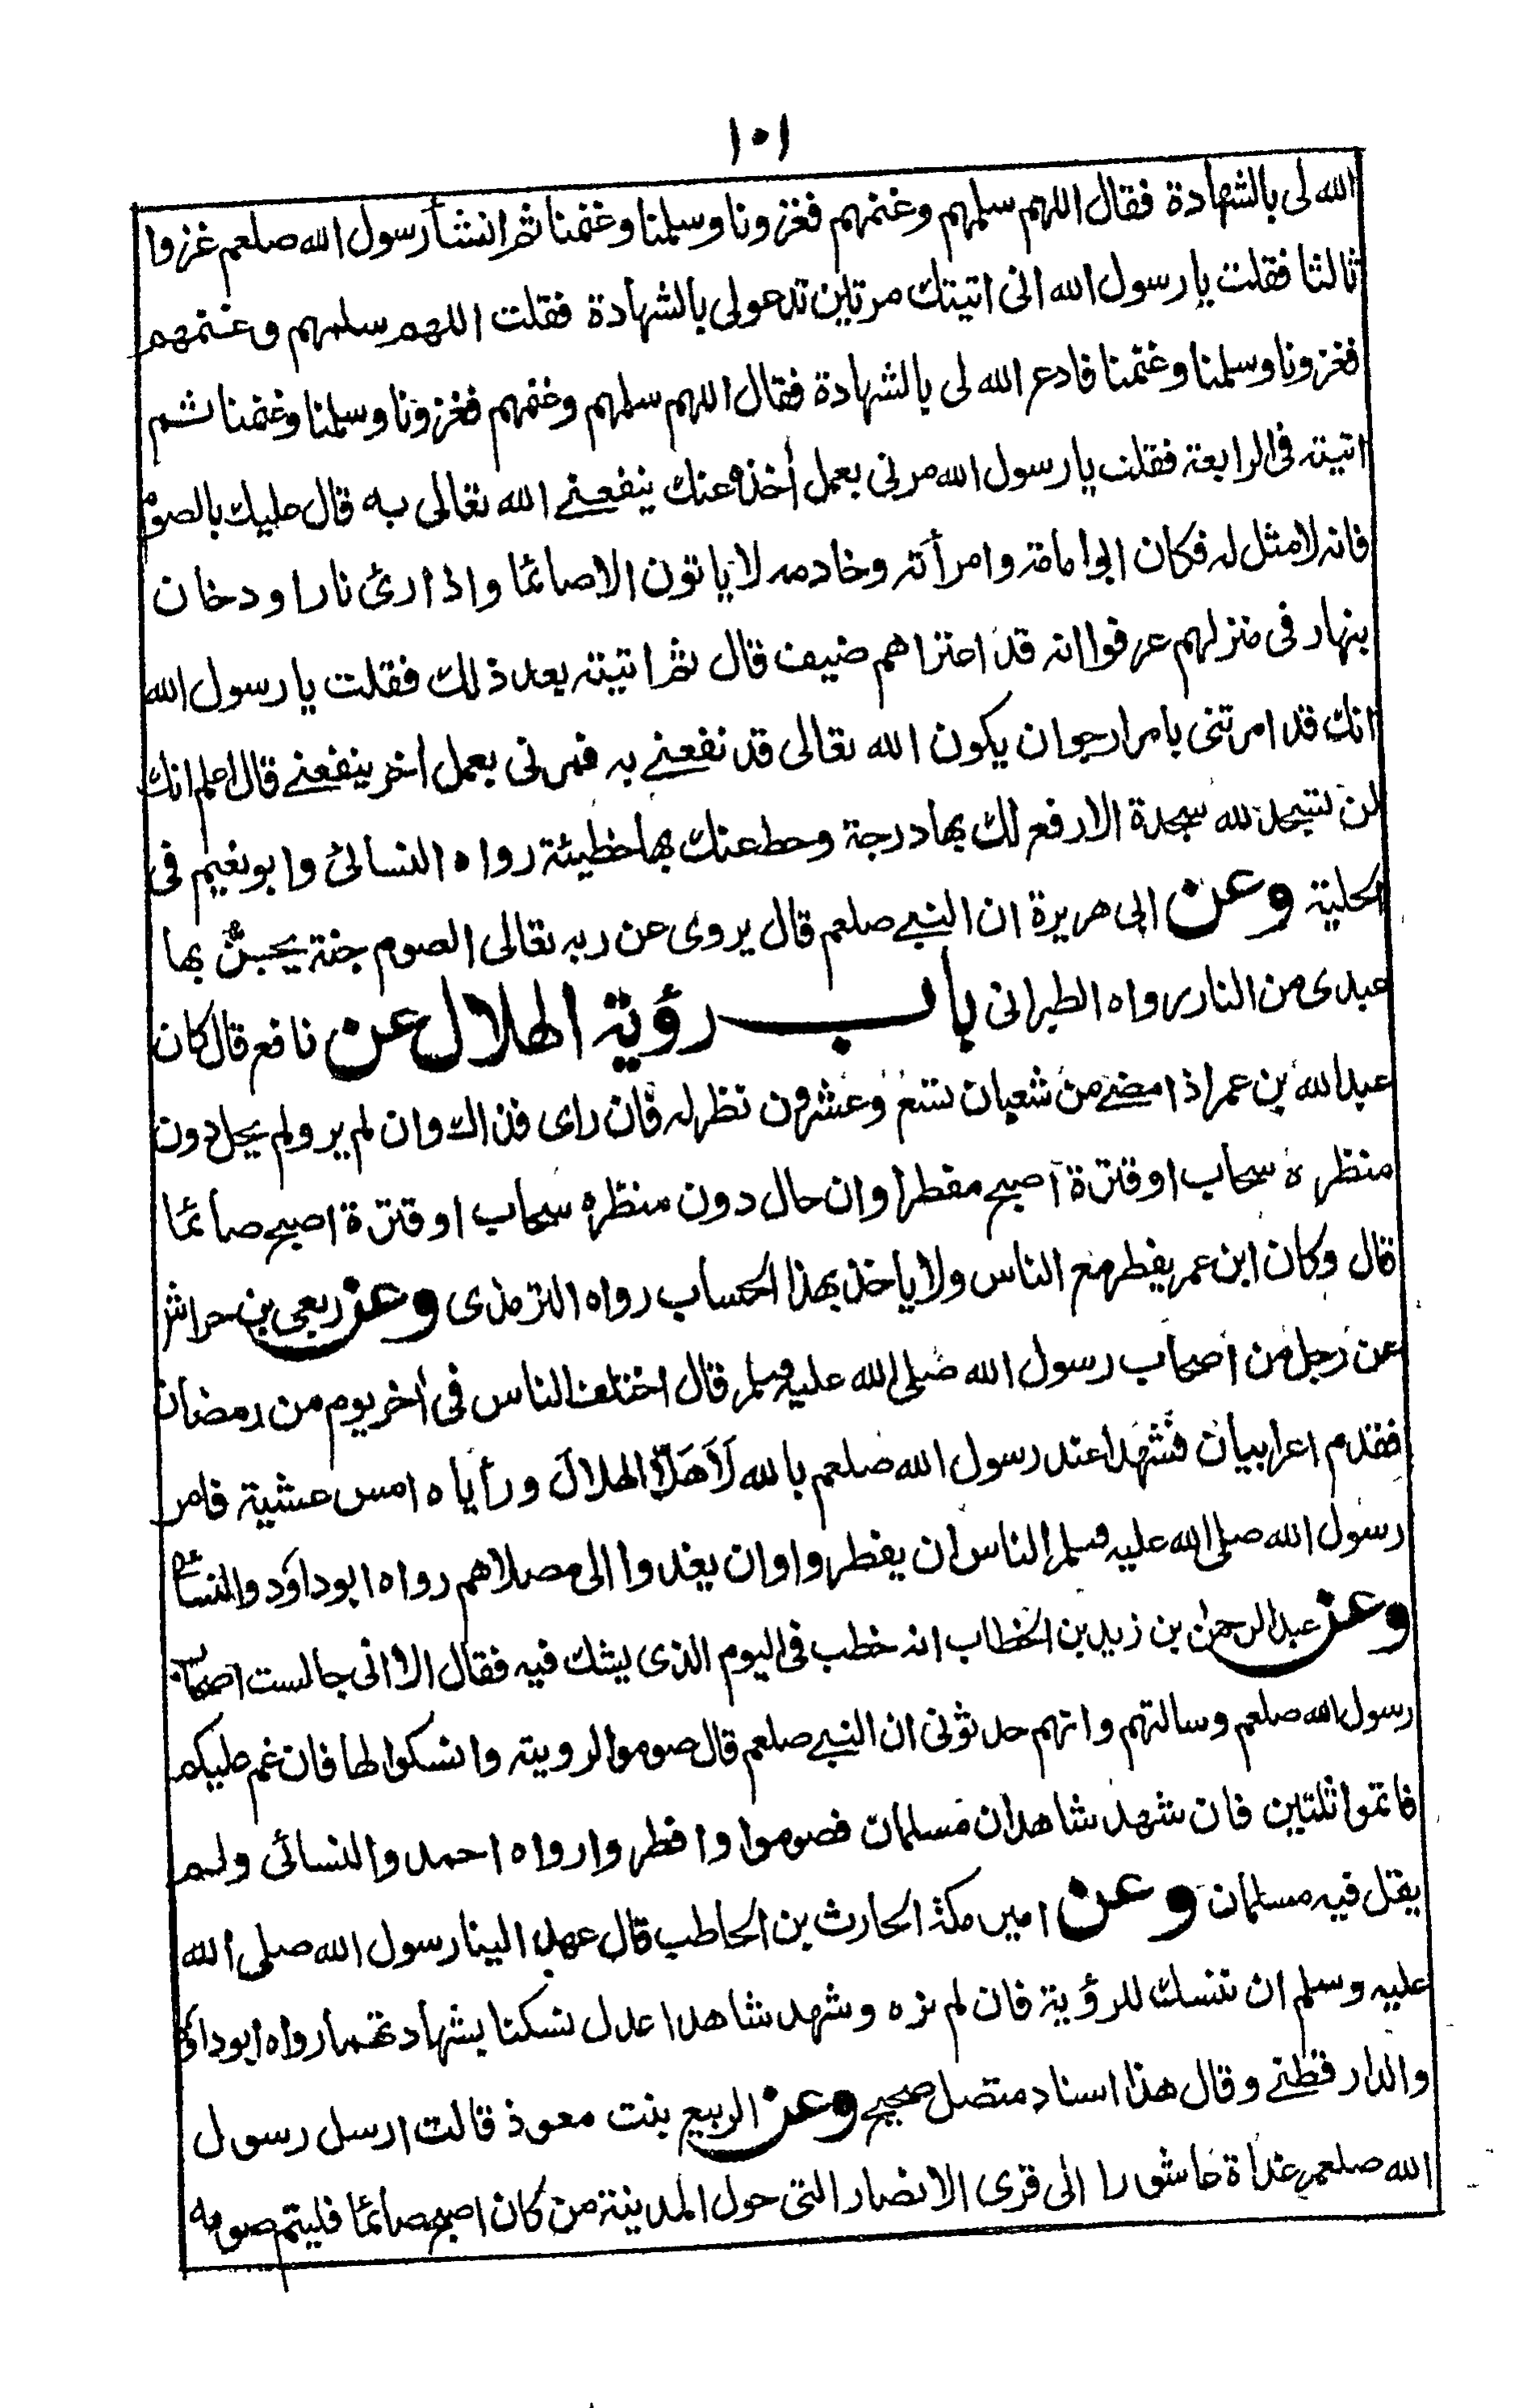 ١٠١
الله لى بالشهادة فقال اللهم سلمهم وغنمهم فغزونا وسلمنا وغنمنا ثم انشأ رسول الله صلعم غزوا
ثالثا فقلت يا رسول الله انى اتيتك مرتين تدعولى بالشهادة فقلت اللهم سلمهم وغنمهم
فغزونا وسلمنا وغنمنا فادع الله لى بالشهادة فقال اللهم سلمهم وغنمهم فغزونا وسلمنا وغنمنا ثم
اتيته فى الرابعة فقلت يا رسول الله مرنى بعمل أخذه عنك ينفعنے الله تعالى به قال عليك بالصوم
فانه لا مثل له فكان ابوامامة وامرأته وخادمه لا ياتون الا صائما واذا رئ نارا ودخان
بنهار فى منزلهم عرفوا انه قد اعتراهم ضيف قال ثم اتيته بعد ذلك فقلت يا رسول الله
انك قد امرتنى بامر ارجوان يكون الله تعالى قد نفعنے به فمرنى بعمل اخر ينفعنے قال اعلم انك
لن تسجد لله سجدة الا رفع لك بها درجة وحط عنك بها خطيئة رواه النسائى وابو نعيم فى
الحلية وعن ابى هريرة ان النبے صلعم قال يروى عن ربه تعالى الصوم جنة يجتن بها
عبدى من النار رواه الطبرانى باب رؤية الهلال عن نافع قال كان
عبد الله بن عمر اذا مضے من شعبان تسع وعشرون نظر له فان راى فذاك وان لم ير ولم يحل دون
منظره سحاب او قترة اصبح مفطرا وان حال دون منظره سحاب او قترة اصبح صائما
قال وكان ابن عمر يفطر مع الناس ولا ياخذ بهذا الحساب رواه الترمذى وعن ربعى بن حراش
عن رجل من اصحاب رسول الله صلى الله عليه وسلم قال اختلف الناس فى اخر يوم من رمضان
فقدم اعرابيان فشهدا عند رسول الله صلعم بالله لَاَهَلَّا الهلالَ ورأياه امس عشية فامر
رسول الله صلى الله عليه وسلم الناس ان يفطروا وان يغدوا الى مصلاهم رواه ابوداؤد والنسائى
وعن عبد الرحمن بن زيد بن الخطاب انه خطب فى اليوم الذى يشك فيه فقال الا انى جالست اصحاب
رسول الله صلعم وسالتهم وانهم حدثونى ان النبے صلعم قال صوموا لرويته وانسكوا لها فان غم عليكم
فاتموا ثلثين فان شهد شاهدان مسلمان فصوموا وافطروا رواه احمد والنسائى ولم
يقل فيه مسلمان وعن امير مكة الحارث بن الحاطب قال عهد الينا رسول الله صلى الله
عليه وسلم ان ننسك للرؤية فان لم نره وشهد شاهدا عدل نسكنا بشهادتهما رواه ابوداؤد
والدارقطنے وقال هذا اسناد متصل صحيح وعن الربيع بنت معوذ قالت ارسل رسول
الله صلعم غداة عاشورا الى قرى الانصار التى حول المدينة من كان اصبح صائما فليتم صومه